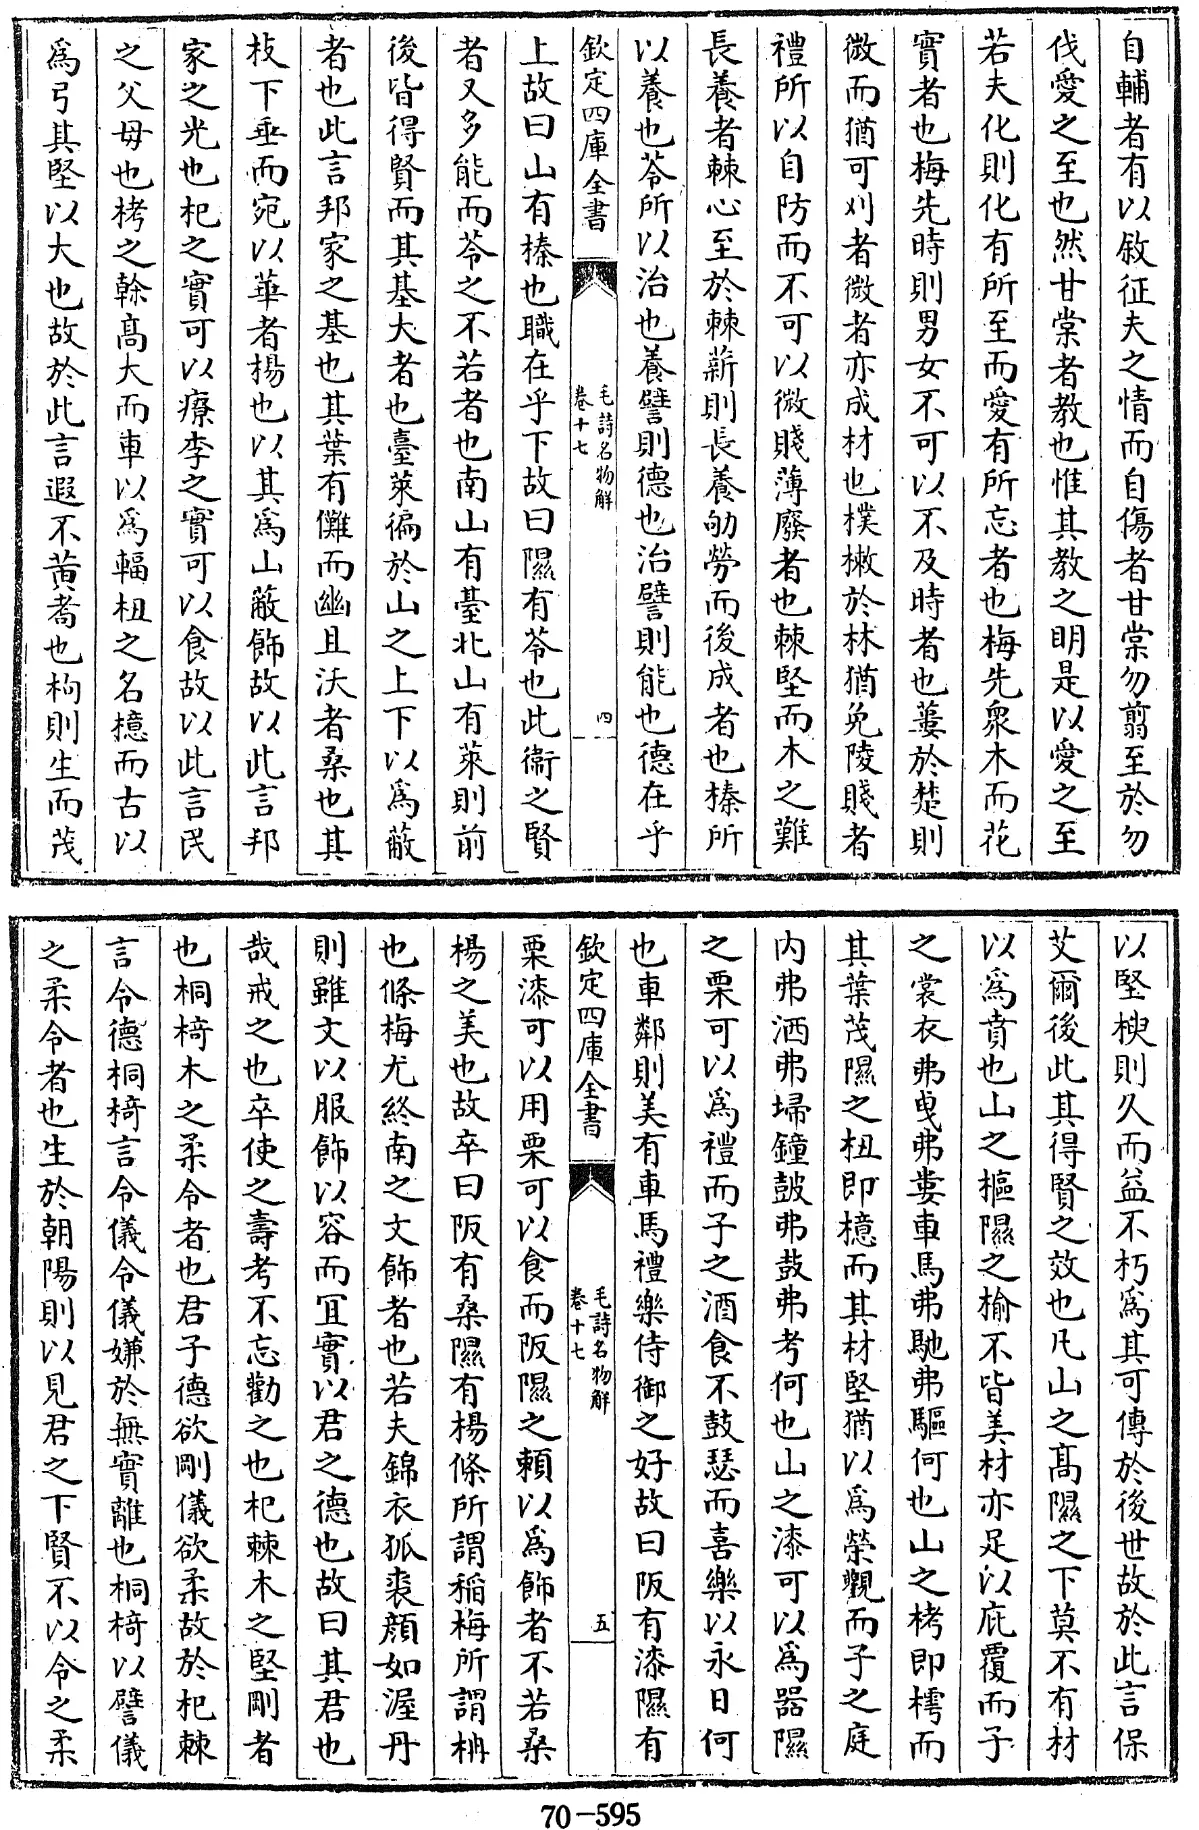 自輔者有以敘征夫之情而自傷者甘棠勿翦至於勿
伐愛之至也然甘棠者教也惟其教之明是以愛之至
若夫化則化有所至而愛有所忘者也梅先衆木而花
實者也梅先時則男女不可以不及時者也蔞於楚則
微而猶可刈者微者亦成材也樸樕於林猶免陵賤者
禮所以自防而不可以微賤薄廢者也棘堅而木之難
長養者棘心至於棘薪則長養劬勞而後成者也榛所
以養也苓所以治也養譬則德也治譬則能也德在乎
欽定四庫全書
毛詩名物解
卷十七
四
上故曰山有榛也職在乎下故曰隰有苓也此衞之賢
者又多能而苓之不若者也南山有臺北山有萊則前
後皆得賢而其基大者也臺萊徧於山之上下以為蔽
者也此言邦家之基也其葉有儺而幽且沃者桑也其
枝下垂而宛以華者楊也以其為山蔽飾故以此言邦
家之光也杞之實可以療李之實可以食故以此言民
之父母也栲之榦高大而車以為輻杻之名檍而古以
為弓其堅以大也故於此言遐不黃耇也枸則生而茂
以堅楰則久而益不朽為其可傳於後世故於此言保
艾爾後此其得賢之效也凡山之髙隰之下莫不有材
以為賁也山之樞隰之榆不皆美材亦足以庇覆而子
之裳衣弗曳弗婁車馬弗馳弗驅何也山之栲即樗而
其葉茂隰之杻即檍而其材堅猶以為榮觀而子之庭
内弗洒弗埽鐘鼓弗鼓弗考何也山之漆可以為器隰
之栗可以為禮而子之酒食不鼓瑟而喜樂以永日何
也車鄰則美有車馬禮樂侍御之好故曰阪有漆隰有
欽定四庫全書
毛詩名物解
卷十七
五
栗漆可以用栗可以食而阪隰之頼以為飾者不若桑
楊之美也故卒曰阪有桑隰有楊條所謂稻梅所謂柟
也條梅尤終南之文飾者也若夫錦衣狐裘顔如渥丹
則雖文以服飾以容而冝實以君之德也故曰其君也
哉戒之也卒使之壽考不忘勸之也杞棘木之堅剛者
也桐椅木之柔令者也君子德欲剛儀欲柔故於杞棘
言令德桐椅言令儀令儀嫌於無實離也桐椅以譬儀
之柔令者也生於朝陽則以見君之下賢不以令之柔
70-595